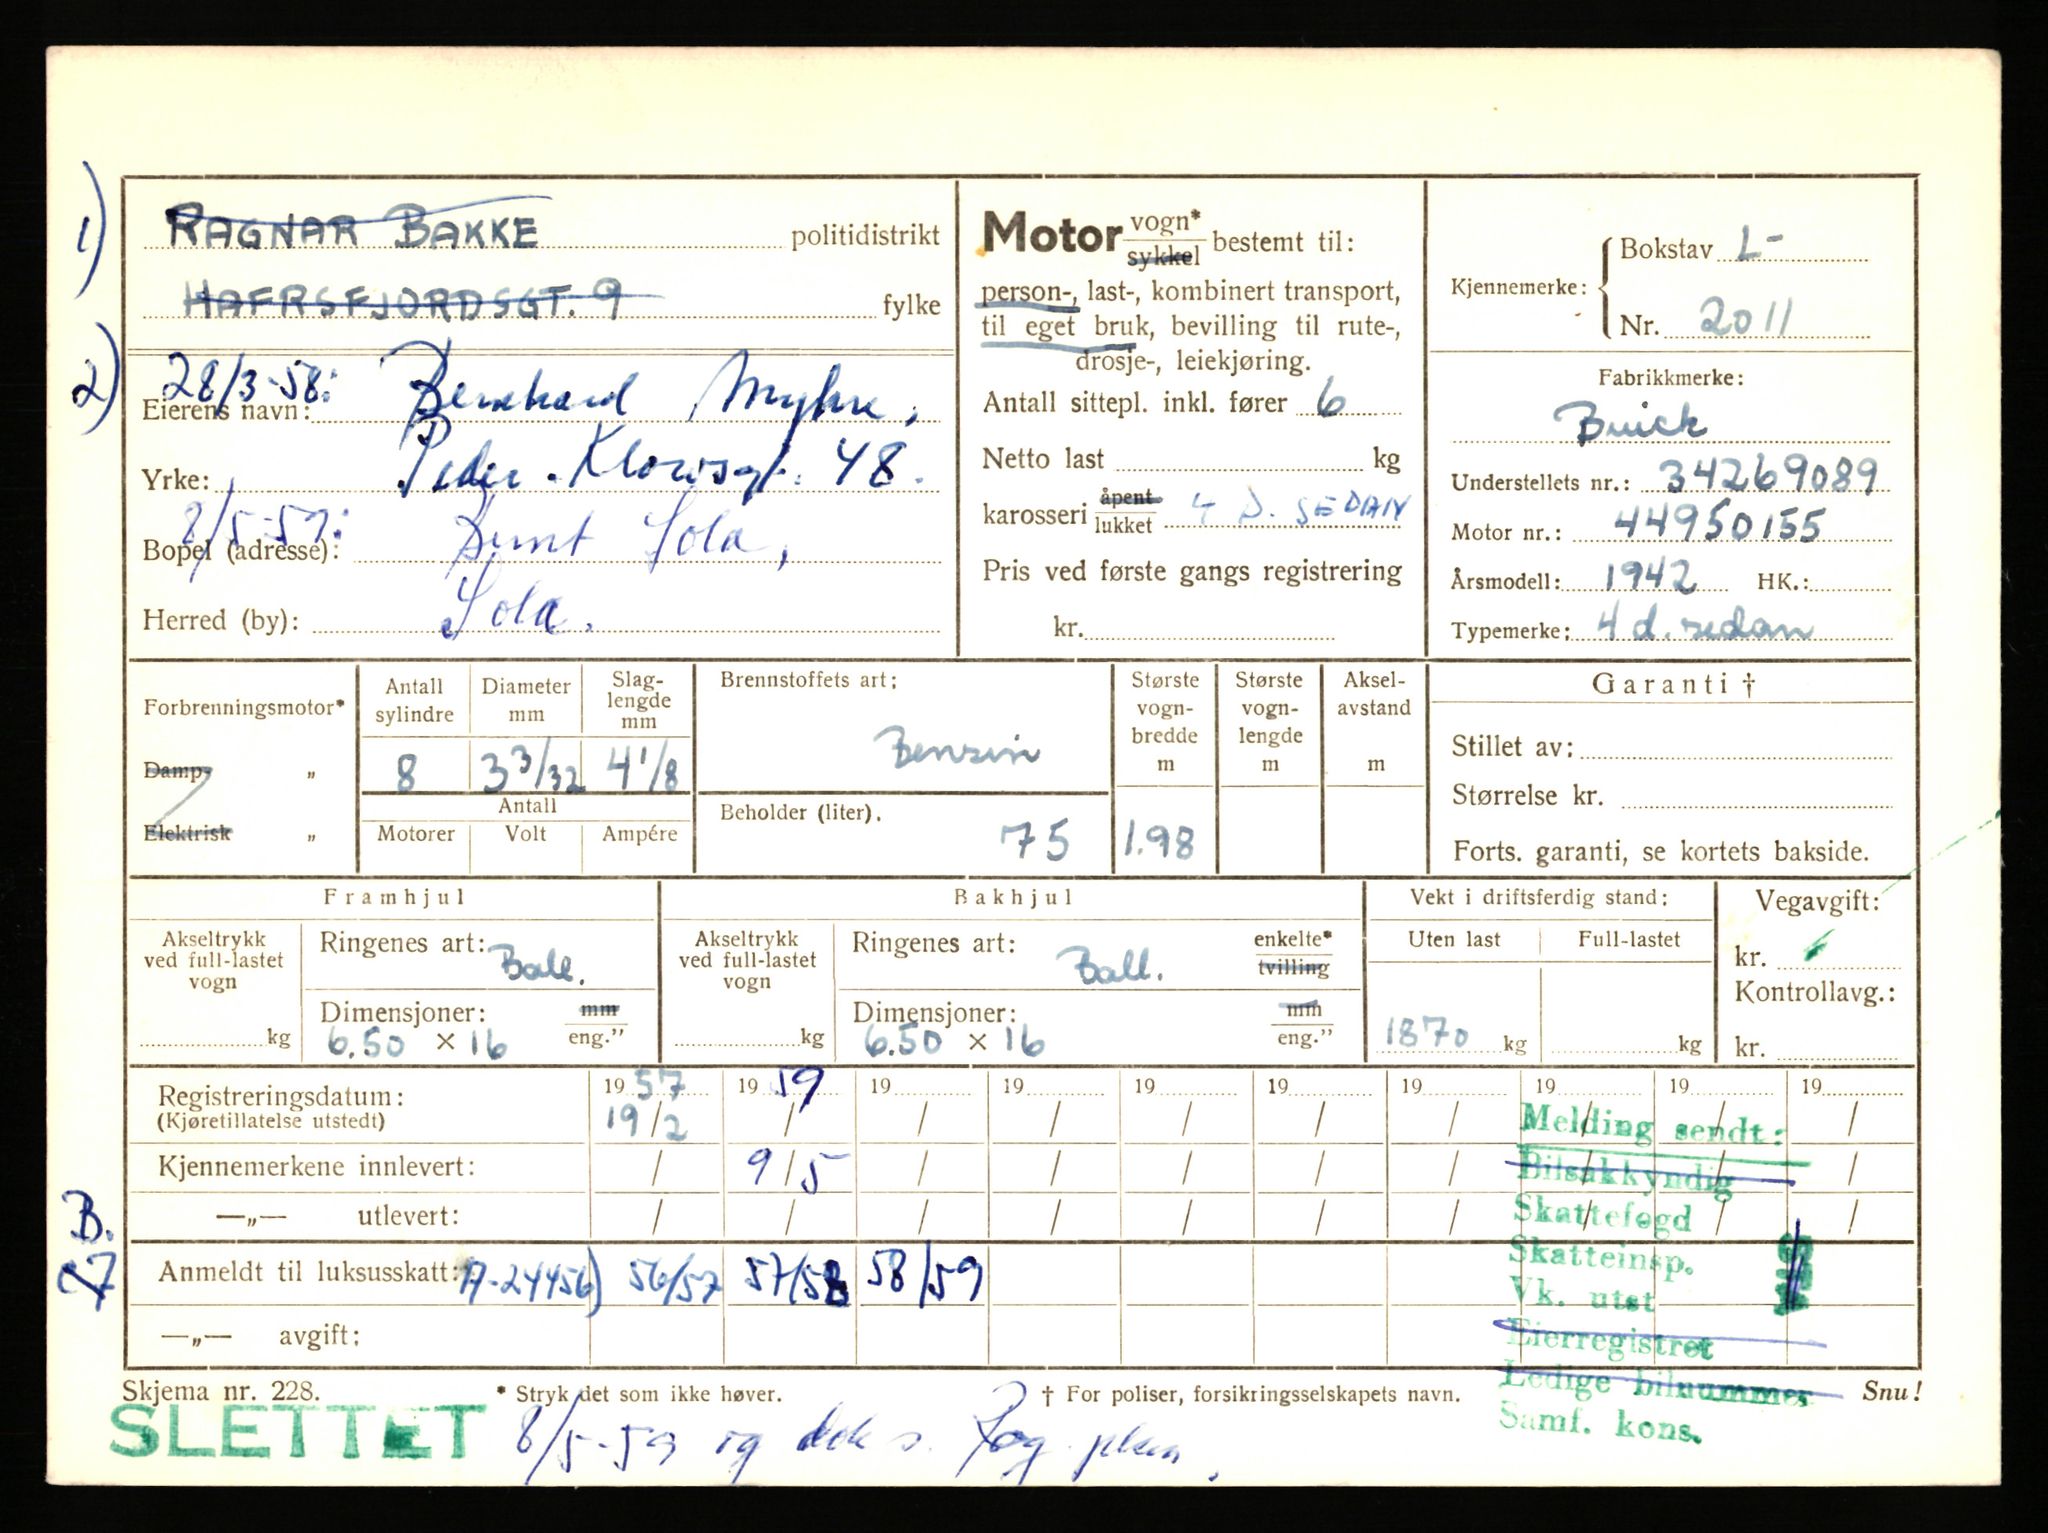 1) RAGNAR BAKKE politidistrikt
HAFRSFJORDSGT. 9 fylke
2) 28/3-58: Bernhard Myhre,
Eierens navn:
Peder Klowsgt. 48.
Yrke:
8/5-59: Sola,
Bopel (adresse):
Sola.
Herred (by):
Motor vogn* sykkel bestemt til:
person-, last-, kombinert transport,
til eget bruk, bevilling til rute-,
drosje-, leiekjøring.
Antall sittepl. inkl. fører 6
Netto last kg
karosseri åpent lukket 4 D. SEDAN
Pris ved første gangs registrering
kr.
Kjennemerke: Bokstav L-
Nr. 2011
Fabrikkmerke:
Buick
Understellets nr.: 34269089
Motor nr.: 44950155
Årsmodell: 1942 HK.:
Typemerke: 4 d. sedan
Forbrenningsmotor*
Damp- „
Elektrisk „
Antall sylindre 8
Diameter mm 3 3/32
Slag-lengde mm 4 1/8
Antall
Motorer Volt Ampére
Brennstoffets art:
Bensin
Beholder (liter).
75
Største vogn-bredde m 1.98
Største vogn-lengde m
Aksel-avstand m
Garanti †
Stillet av:
Størrelse kr.
Forts. garanti, se kortets bakside.
Framhjul
Akseltrykk ved full-lastet vogn kg
Ringenes art: Ball.
Dimensjoner: mm
6.50 × 16 eng."
Bakhjul
Akseltrykk ved full-lastet vogn kg
Ringenes art: Ball. enkelte* tvilling
Dimensjoner: mm
6.50 × 16 eng."
Vekt i driftsferdig stand:
Uten last Full-lastet
1870 kg kg
Vegavgift:
kr.
Kontrollavg.:
kr.
Registreringsdatum: 19 57 19 59 19 19 19 19 19 19 19 19
(Kjøretillatelse utstedt) 19/2 / / / / / / / / /
Kjennemerkene innlevert: / 9/5 / / / / / / / /
B. —„— utlevert: / / / / / / / / / /
Anmeldt til luksusskatt: A-24456) 56/57 57/58 58/59
—„— avgift:
Melding sendt:
Bilsakkyndig
Skattefogd
Skatteinsp.
Vk. utst
Eierregistret
Ledige bilnummer
Samf. kons.
Skjema nr. 228. * Stryk det som ikke høver. † For poliser, forsikringsselskapets navn. Snu!
SLETTET 8/5-59